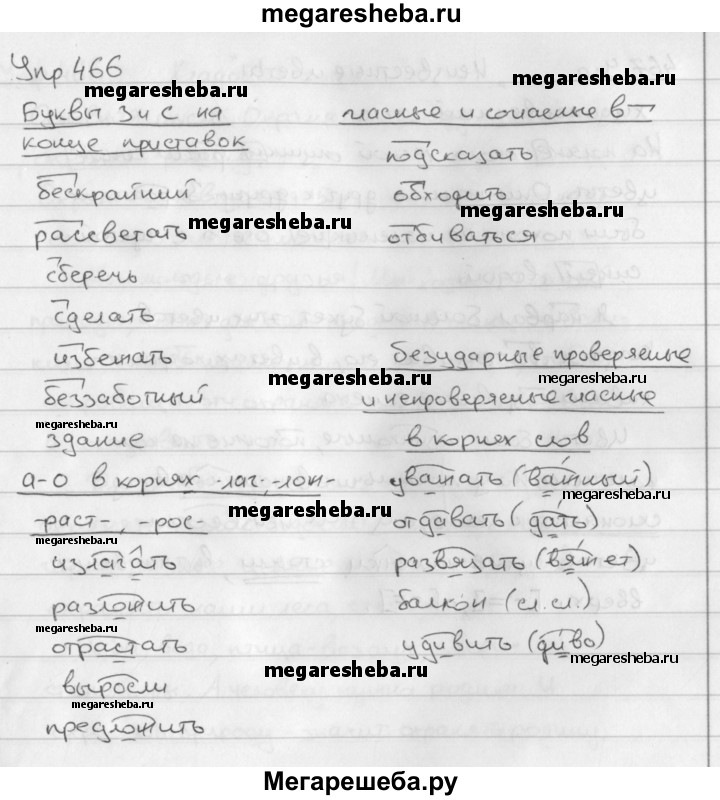 megaresheba.ru
Упр 466
megaresheba.ru
Буквы З и С на
конце приставок
бескрайний
megaresheba.ru
рассветать
сберечь
сделать
избежать
megaresheba.ru
беззаботный
megaresheba.ru
здание
а-о в корнях -лаг-, -лож-
-раст-, -рос-
megaresheba.ru
megaresheba.ru
излагать
разложить
megaresheba.ru
отрастать
выросли
megaresheba.ru
предложить
гласные и согласные в
megaresheba.ru
подсказать
обходить
megaresheba.ru
отбиваться
безударные проверяемые
megaresheba.ru
и непроверяемые гласные
в корнях слов
уважать (важный)
megaresheba.ru
отдавать (дать)
развязать (вяжет)
балкон (сл. сл.)
удивить (диво)
megaresheba.ru
megaresheba.ru
Мегарешеба.ру